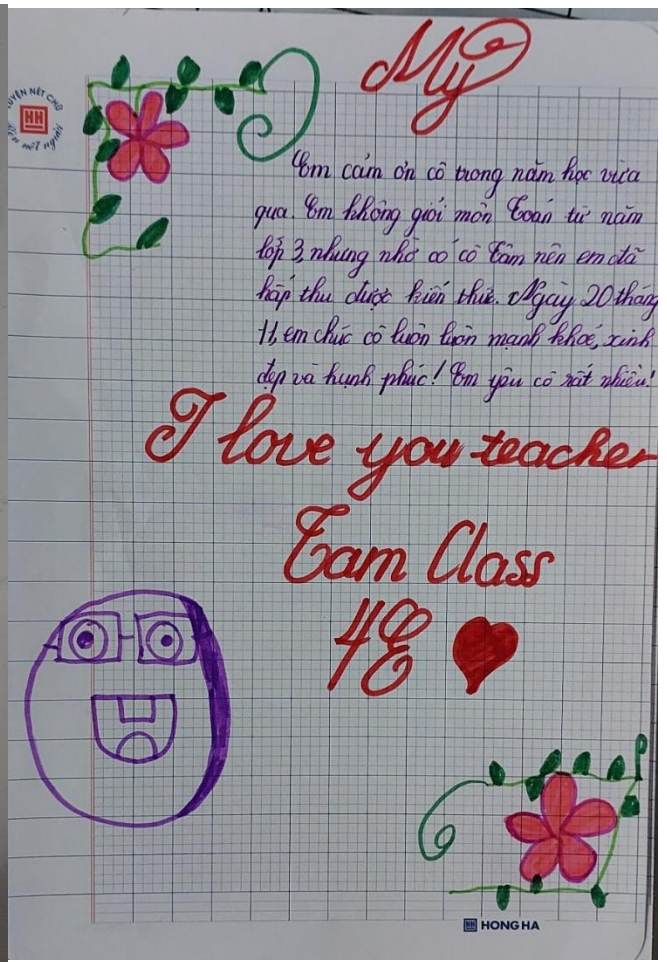 My
LUYỆN NÉT CHỮ
nết người
Em cảm ơn cô trong năm học vừa
qua. Em không giỏi môn Toán từ năm
lớp 3, nhưng nhờ có cô Tâm nên em đã
hấp thu được kiến thức. Ngày 20 tháng
11, em chúc cô luôn luôn mạnh khoẻ, xinh
đẹp và hạnh phúc! Em yêu cô rất nhiều!
I love you teacher
Tam Class
4E
HONG HA